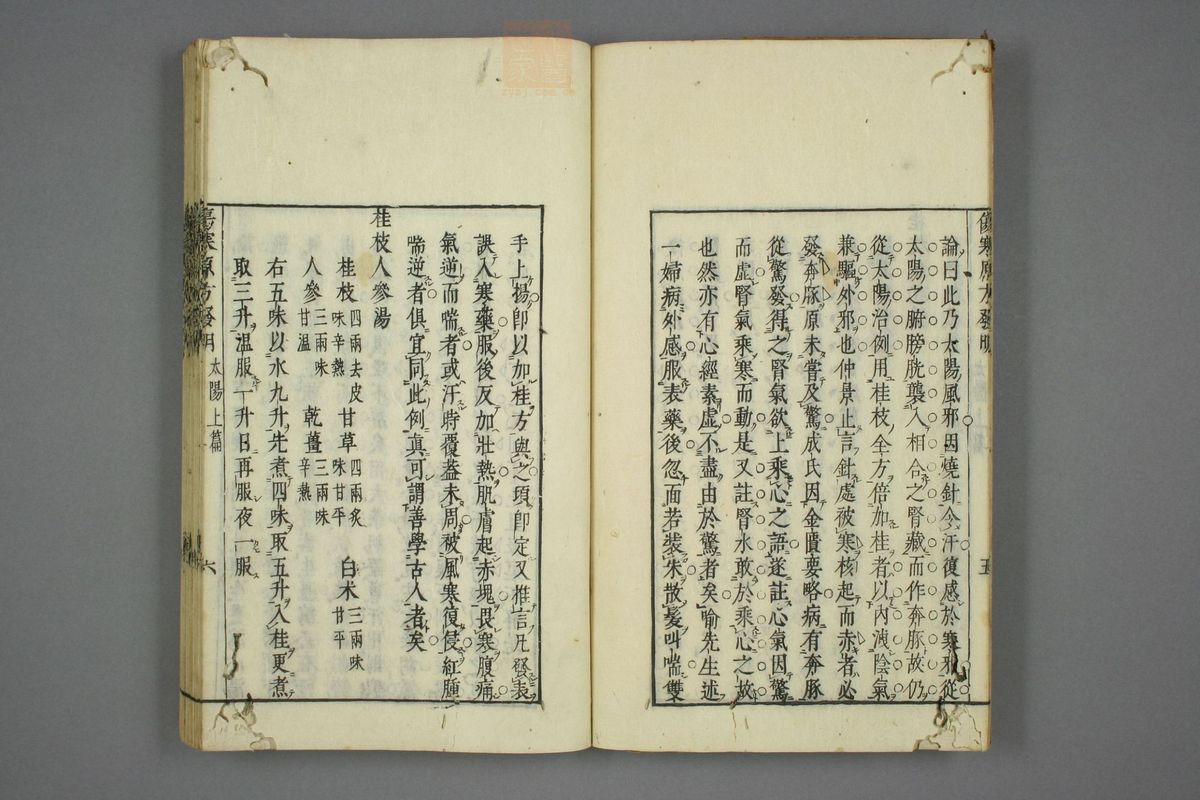 傷寒原方發明
五
論曰此乃太陽風邪因燒針令汗復感於寒邪從
太陽之腑膀胱襲入相合之腎藏而作奔豚故仍
從太陽治例用桂枝全方倍加桂者以內洩陰氣
兼驅外邪也仲景止言針處被寒核起而赤者必
發奔豚原未嘗及驚成氏因金匱要略病有奔豚
從驚發得之腎氣欲上乘心之語遂註心氣因驚
而虛腎氣乘寒而動是又註腎水敢於乘心之故
也然亦有心經素虛不盡由於驚者矣喻先生述
一婦病外感服表藥後忽面若裝朱散髮叫喘雙
手上揚卽以加桂方與之頃卽定又推言凡發表
誤入寒藥服後反加壯熱肌膚起赤塊畏寒腹痛
氣逆而喘者或汗時覆葢未周被風寒復侵紅腫
喘逆者俱宜同此例真可謂善學古人者矣
桂枝人參湯
桂枝 四兩去皮味辛熱 甘草 四兩炙味甘平 白术 三兩味甘平
人參 三兩味甘温 乾薑 三兩味辛熱
右五味以水九升先煮四味取五升入桂更煮
取三升温服一升日再服夜一服
傷寒原方發明 太陽上篇 六
zysj.com.cn